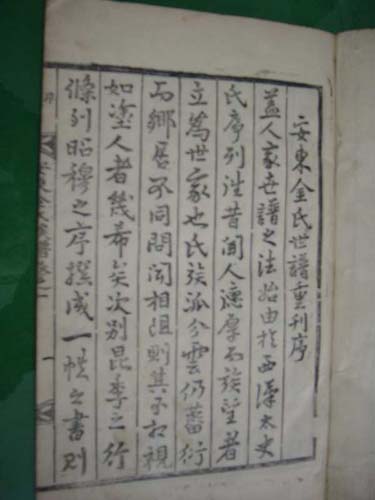 安東金氏世譜重刊序
盖人家世譜之法始由於西漢太史
氏序列誰昔聞人德厚而族望者
立爲世家也氏族派分雲仍蕃衍
而鄕居不同問聞相阻則其不相視
如塗人者幾希矣次別昆季之行
條列昭穆之序撰成一帙之書則
安東金氏世譜卷之一
一